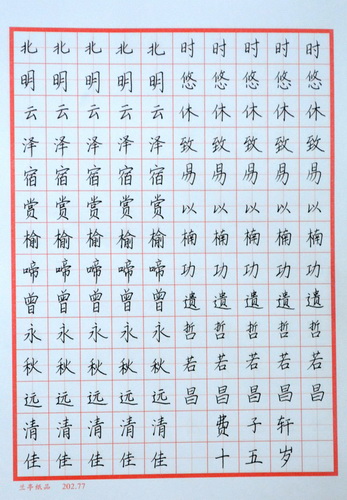 北北北北北时时时时时
明明明明明悠悠悠悠悠
云云云云云休休休休休
泽泽泽泽泽致致致致致
宿宿宿宿宿易易易易易
赏赏赏赏赏以以以以以
榆榆榆榆榆楠楠楠楠楠
啼啼啼啼啼功功功功功
曾曾曾曾曾遗遗遗遗遗
永永永永永哲哲哲哲哲
秋秋秋秋秋若若若若若
远远远远远昌昌昌昌昌
清清清清清费子轩
佳佳佳佳佳十五岁
兰亭纸品 202.77